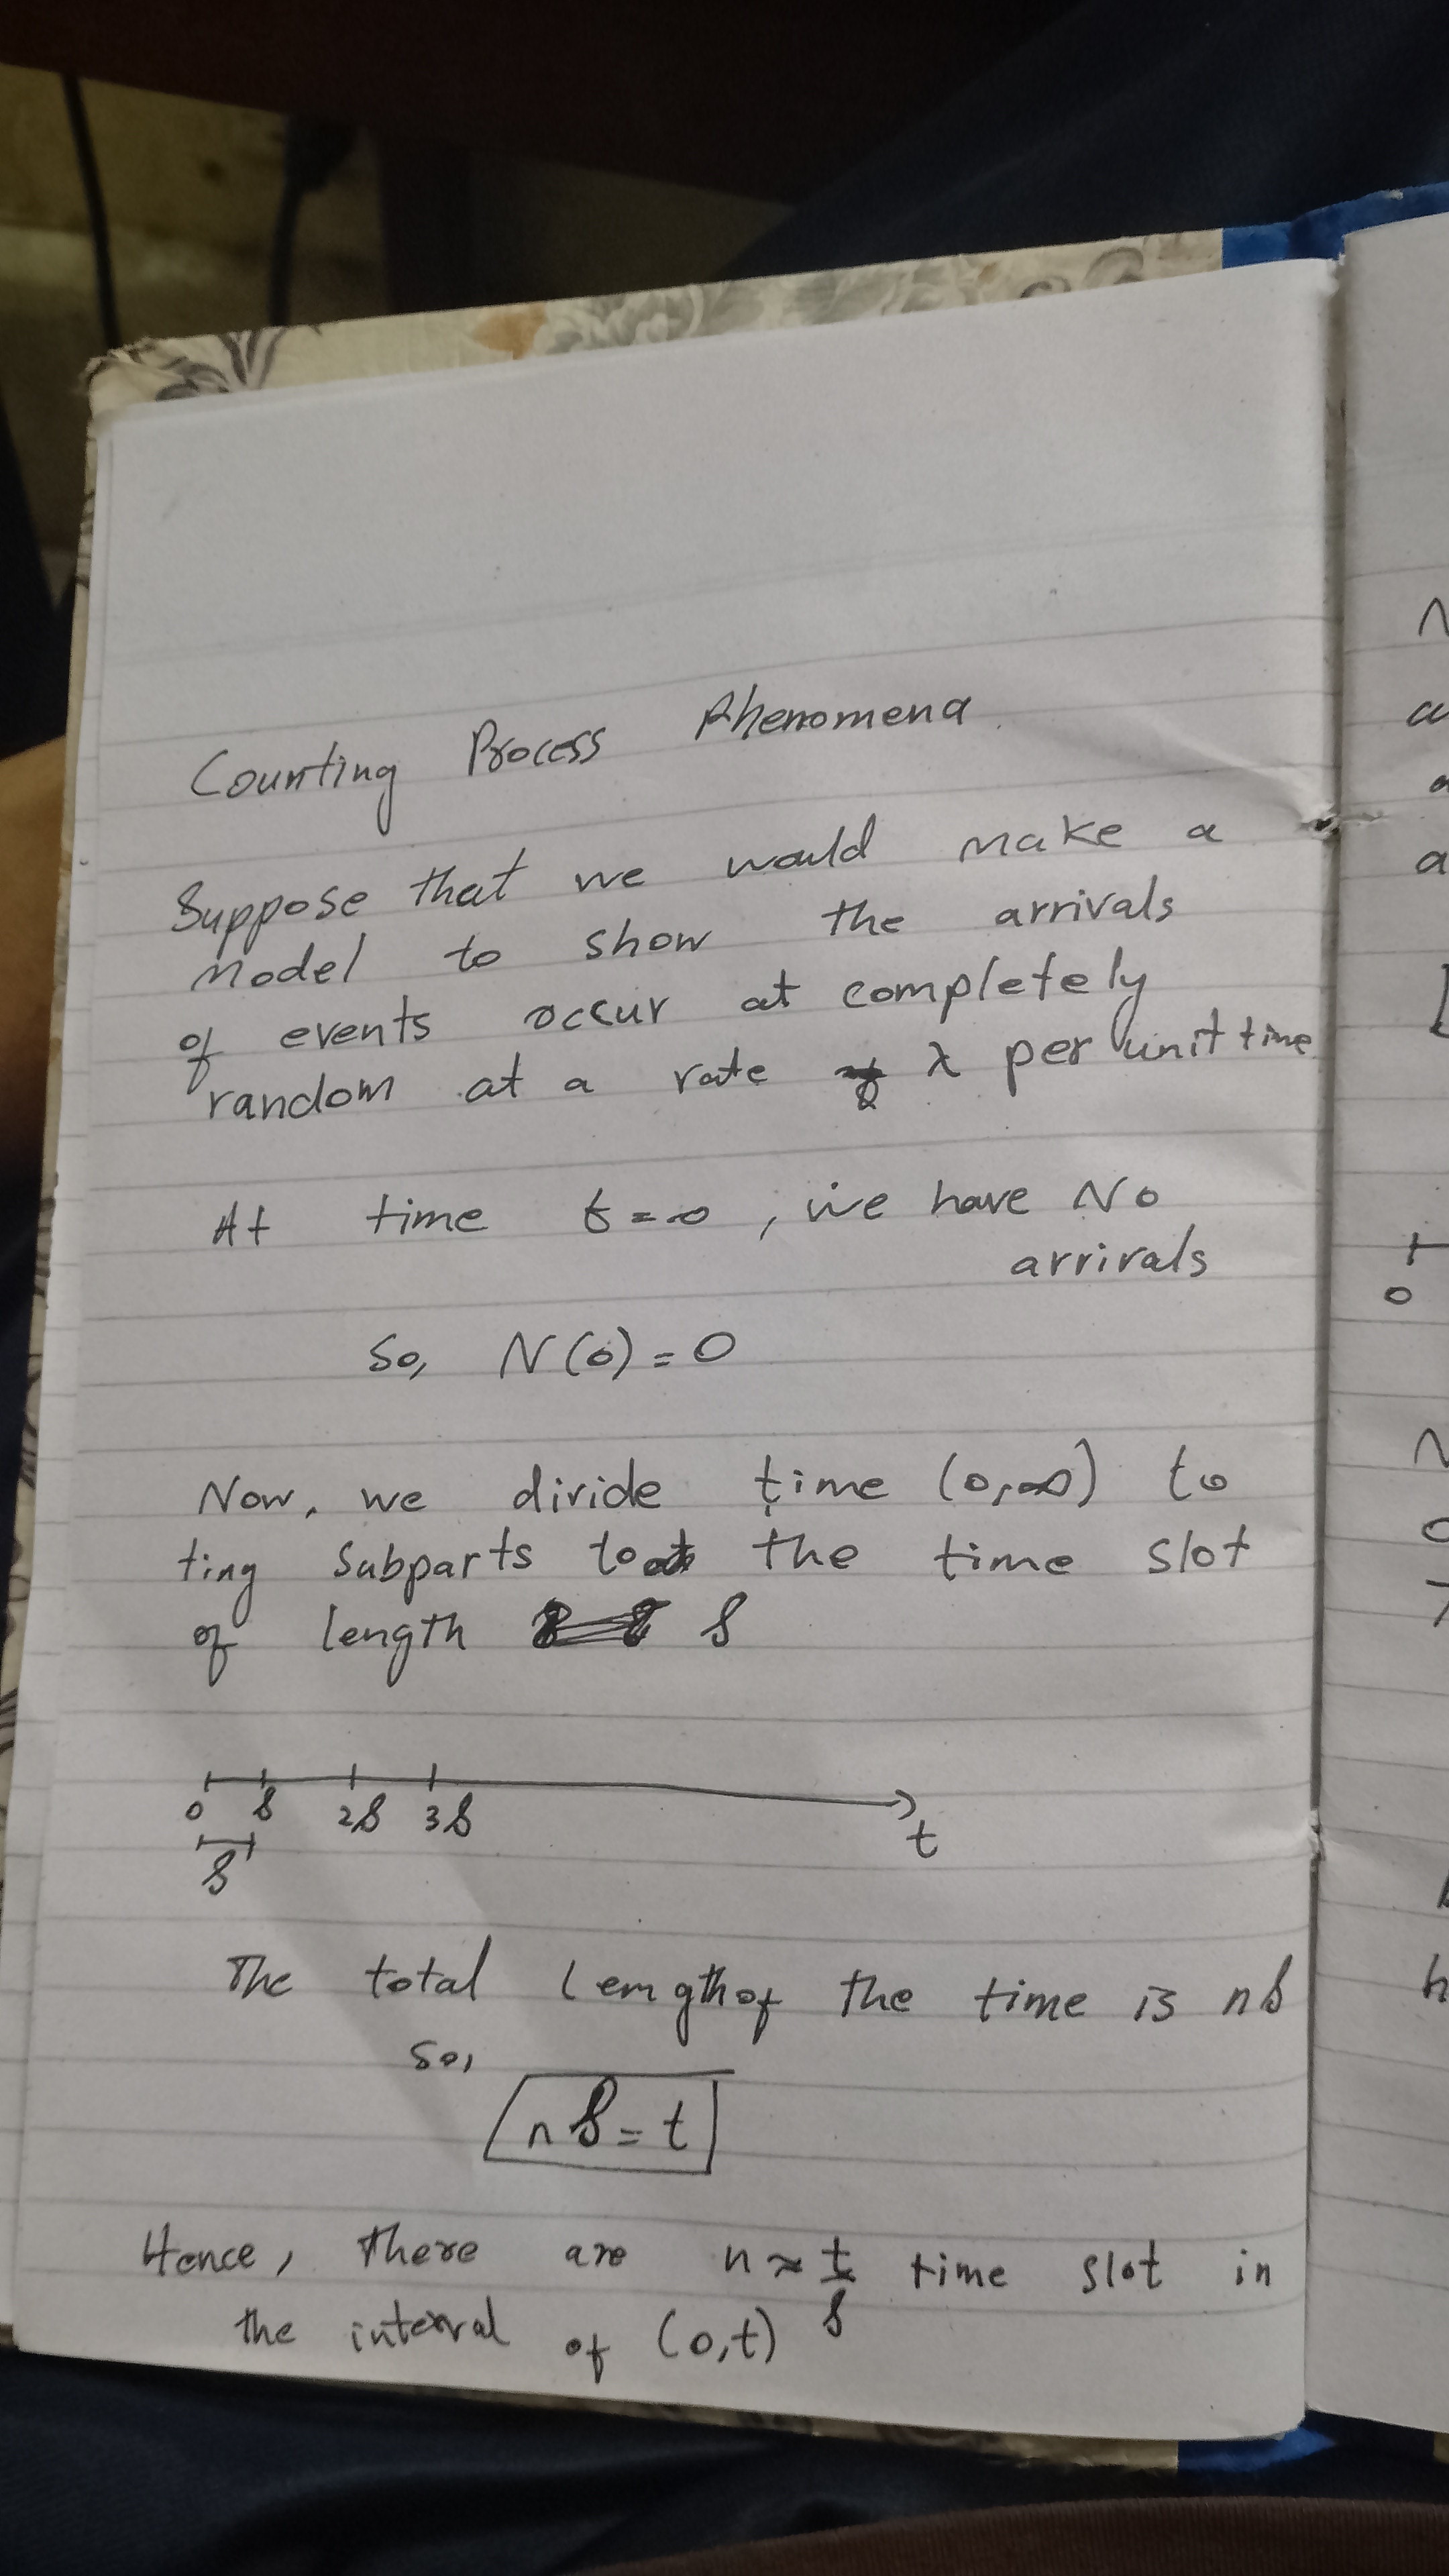 Counting Process Phenomena
Suppose that we would make a
model to show the arrivals
of events occur at completely
random at a rate λ per unit time
At time t=0, we have No
arrivals
So, N(0)=0
Now, we divide time (0,∞) to
ting subparts to the time slot
of length δ
0 δ 2δ 3δ
t
δ
The total length of the time is nδ
so,
nδ=t
Hence, there are n≈t/δ time slot in
the interval of (0,t)